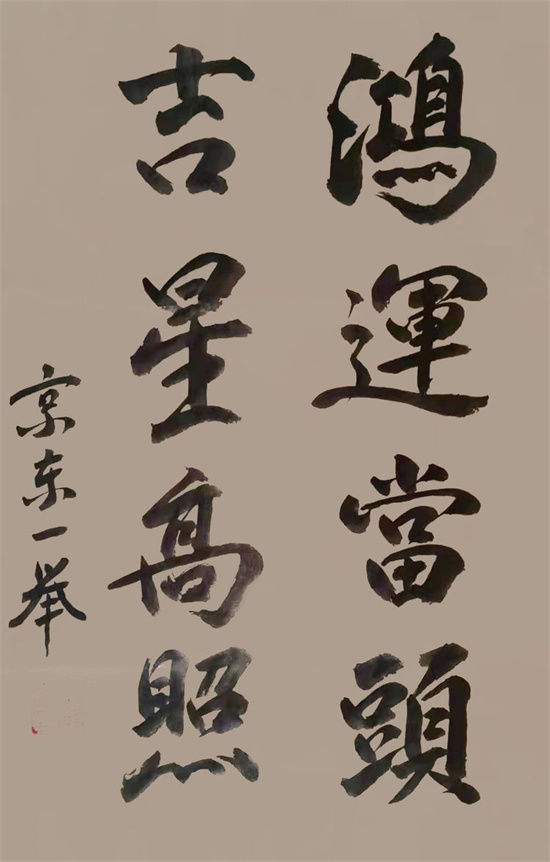 鴻運當頭
吉星高照
京东一举